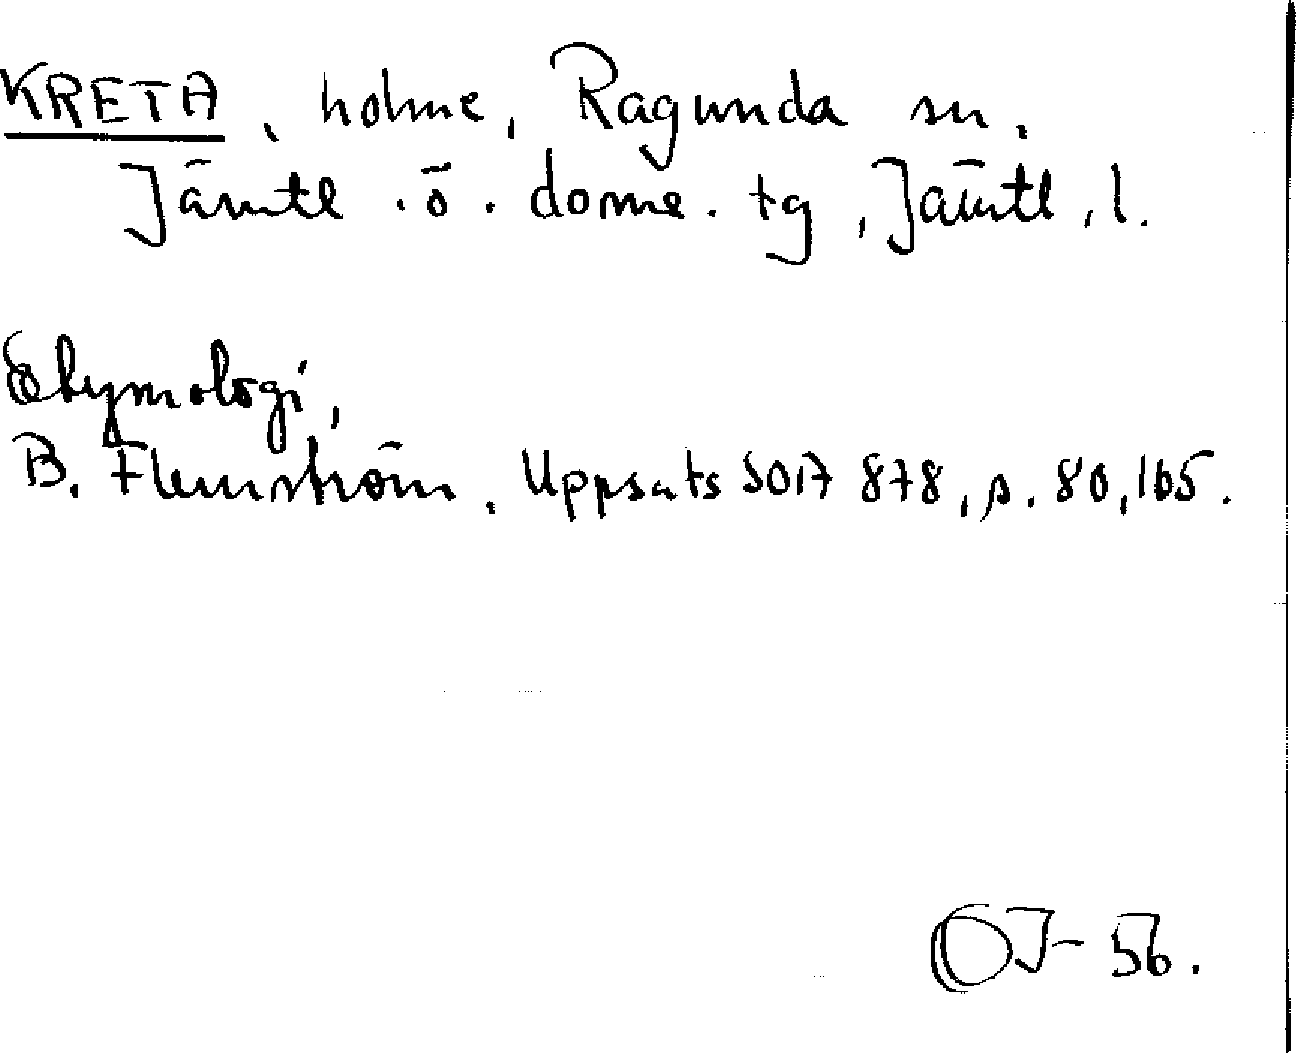 KRETA, holme, Ragunda sn,
Jämtl. ö. doms. tg, Jämtl. l.
Etymologi,
B. Flemström, Uppsats SOA 878, s. 80, 165.
OJ-56.